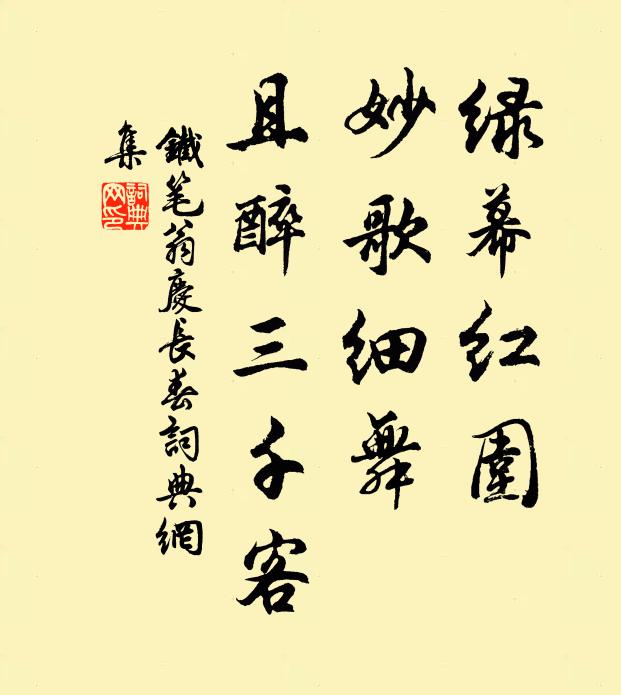 绿幕红围
妙歌细舞
且醉三千客
鐵笔翁慶長春詞典網
集
詞典网印